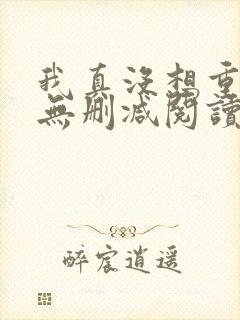 我真没想重
無删减閱讀
醉宸逍遥